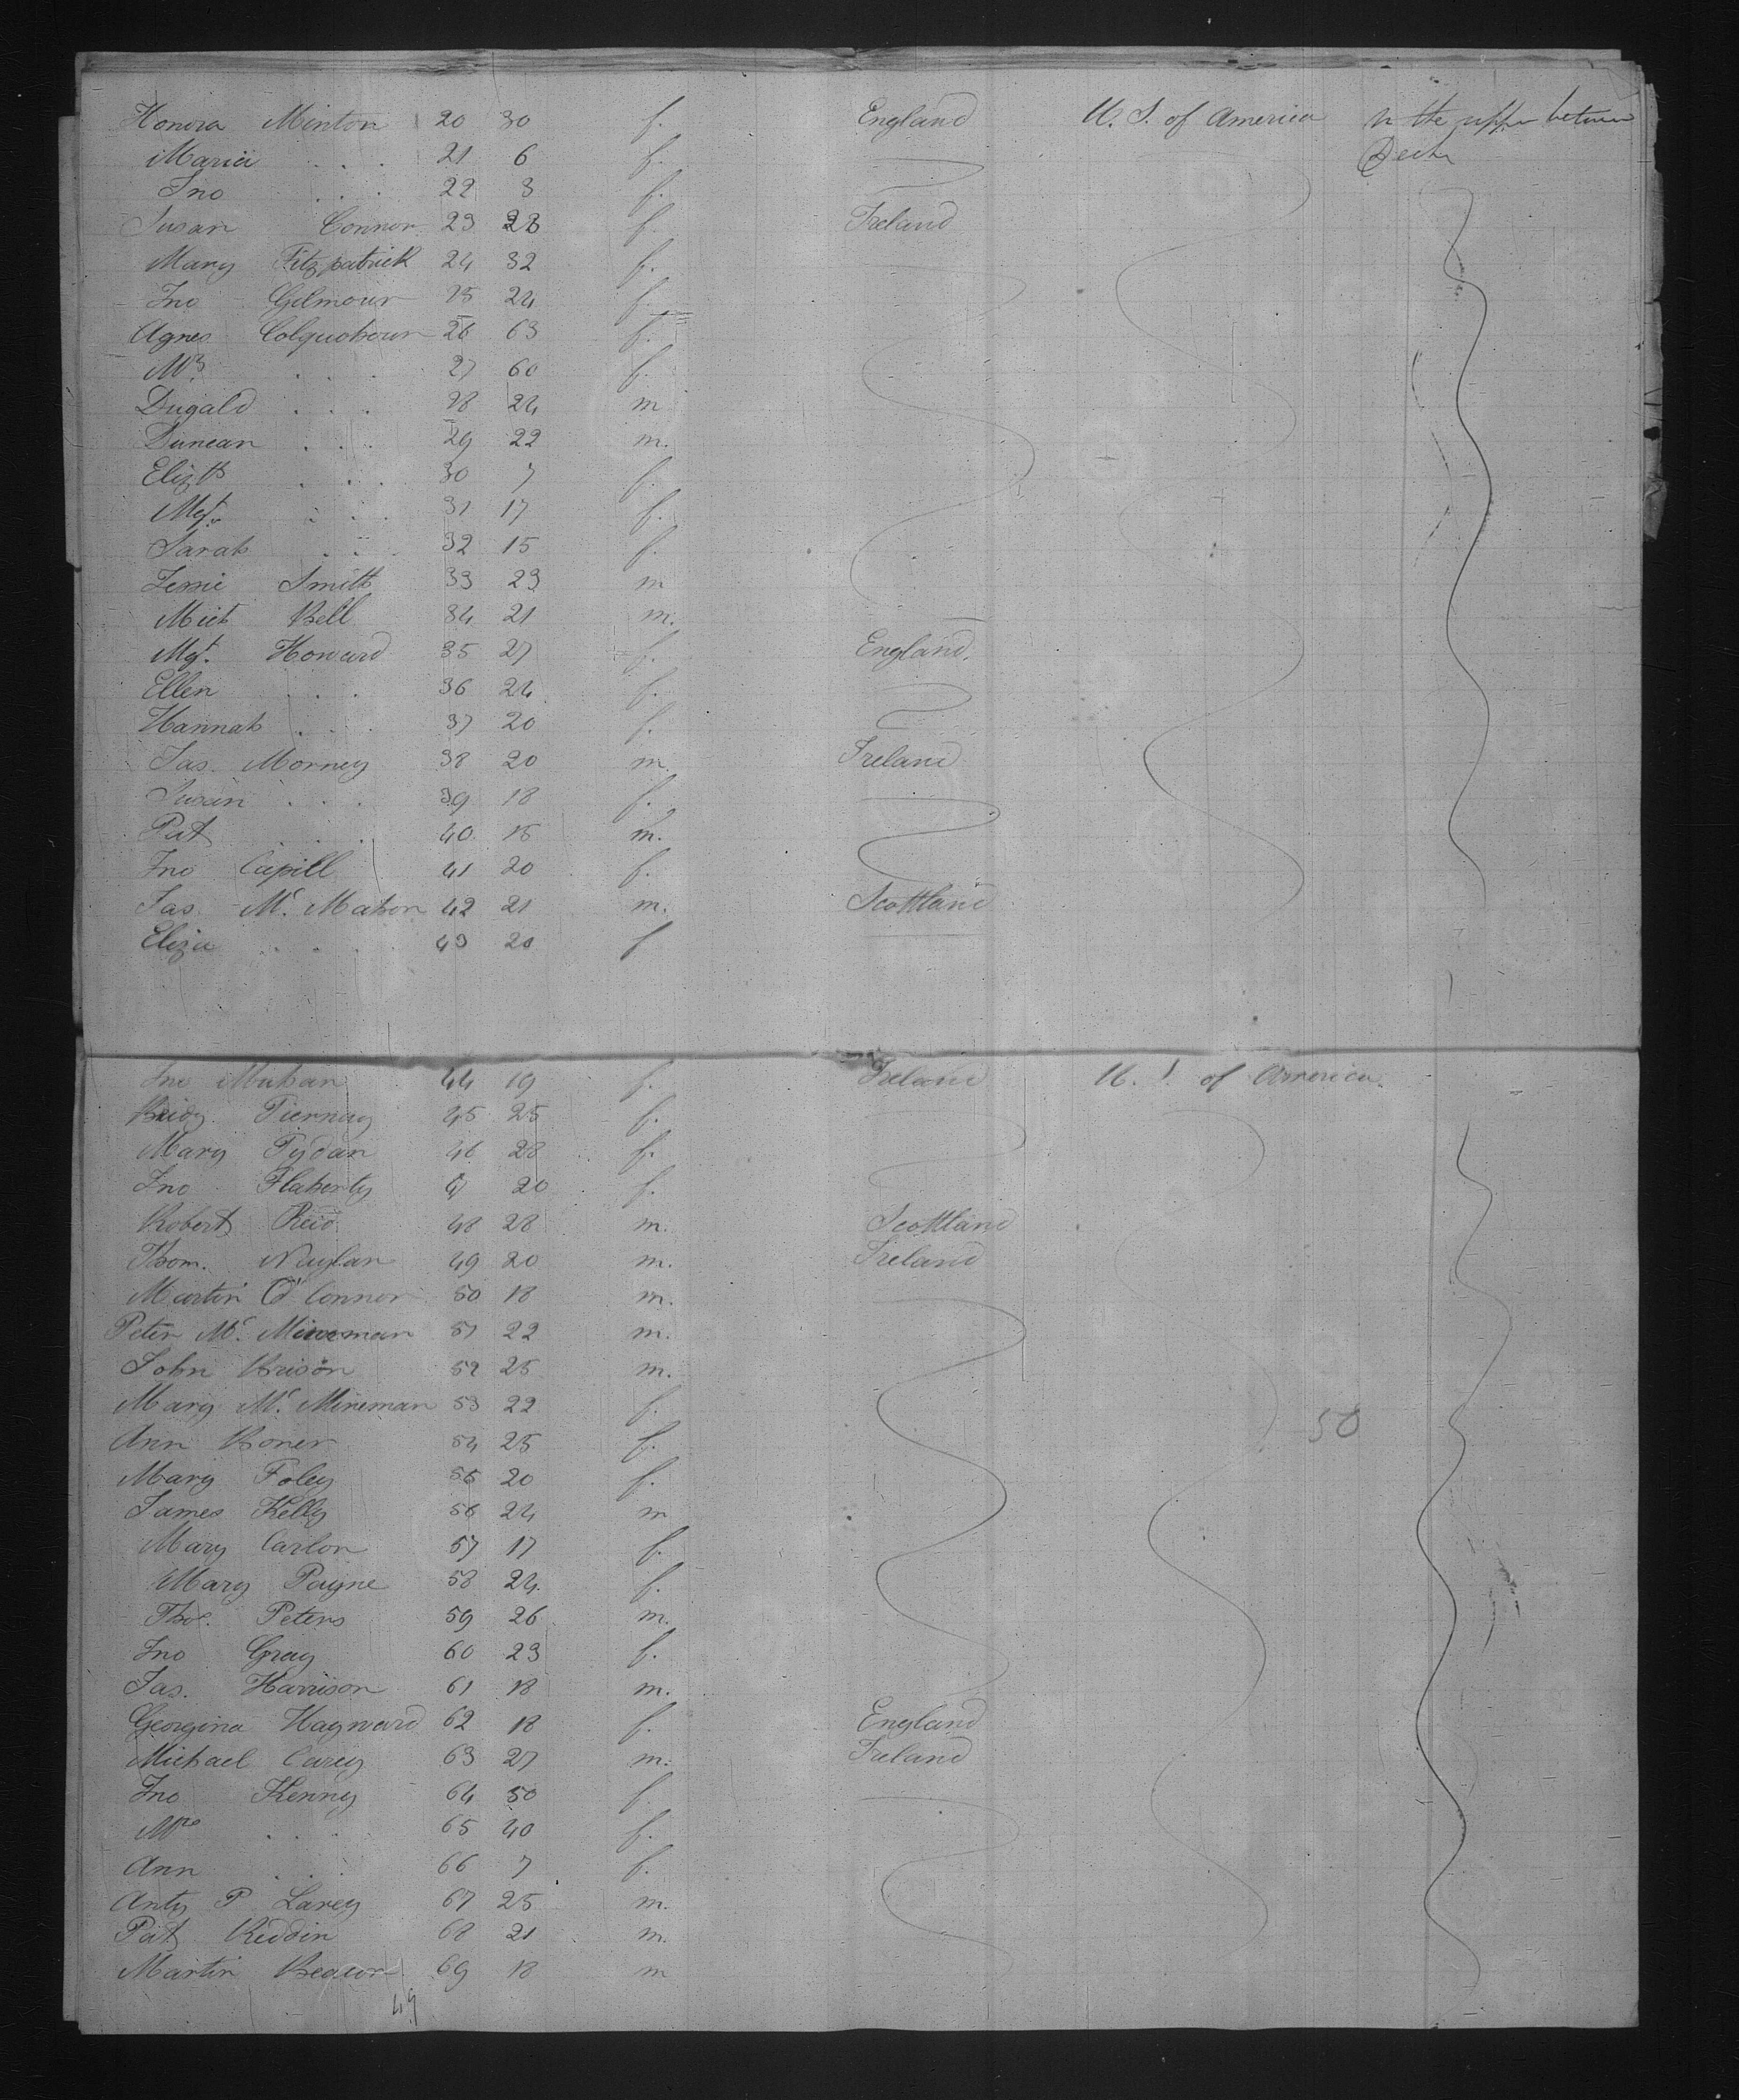 Honora Minton 20 30 f. England U. S. of America In the upper between
Maria . . . 21 6 f. Decks
Jno . . . 22 3 f.
Susan Connor 23 23 f. Ireland
Mary Fitzpatrick 24 32 f.
Jno Gilmour 25 24 f.
Agnes Colquohoun 26 63 f.
Mrs . . . 27 60 f.
Dugald . . . 28 24 m
Duncan . . . 29 22 m.
Elizth . . . 30 7 f.
Mgt. . . . 31 17 f.
Sarah . . . 32 15 f.
Jessie Smith 33 23 m
Mich Bell 34 21 m.
Mgt. Howard 35 27 f. England.
Ellen . . . 36 24 f.
Hannah . . . 37 20 f.
Jas. Morney 38 20 m. Ireland
Susan . . . 39 18 f.
Pat . . . 40 15 m.
Jno Capill 41 20 f.
Jas. Mc. Mahon 42 21 m. Scottland
Eliza . . . 43 20 f
Jno Muhan 44 19 f. Ireland U. S. of America.
Bridg. Tiernay 45 25 f.
Mary Tydan 46 28 f.
Jno Flaherty 47 20 f.
Robert Reid 48 28 m. Scottland
Thom. Nuylan 49 20 m. Ireland
Martin O'Connor 50 18 m.
Peter Mc. Mineman 51 22 m.
John Brison 52 25 m.
Mary Mc. Mineman 53 22 f.
Ann Boner 54 25 f. 50
Mary Foley 55 20 f.
James Kelly 56 24 m
Mary Carlon 57 17 f.
Mary Payne 58 24 f.
Thos. Peters 59 26 m.
Jno Gray 60 23 f.
Jas. Harrison 61 18 m.
Georgina Hayward 62 18 f. England
Michael Carey 63 27 m. Ireland
Jno Kenny 64 50 f.
Mrs . . . 65 40 f.
Ann . . . 66 7 f.
Anty P Larey 67 25 m.
Pat Reddin 68 21 m.
Martin 69 18 m
49